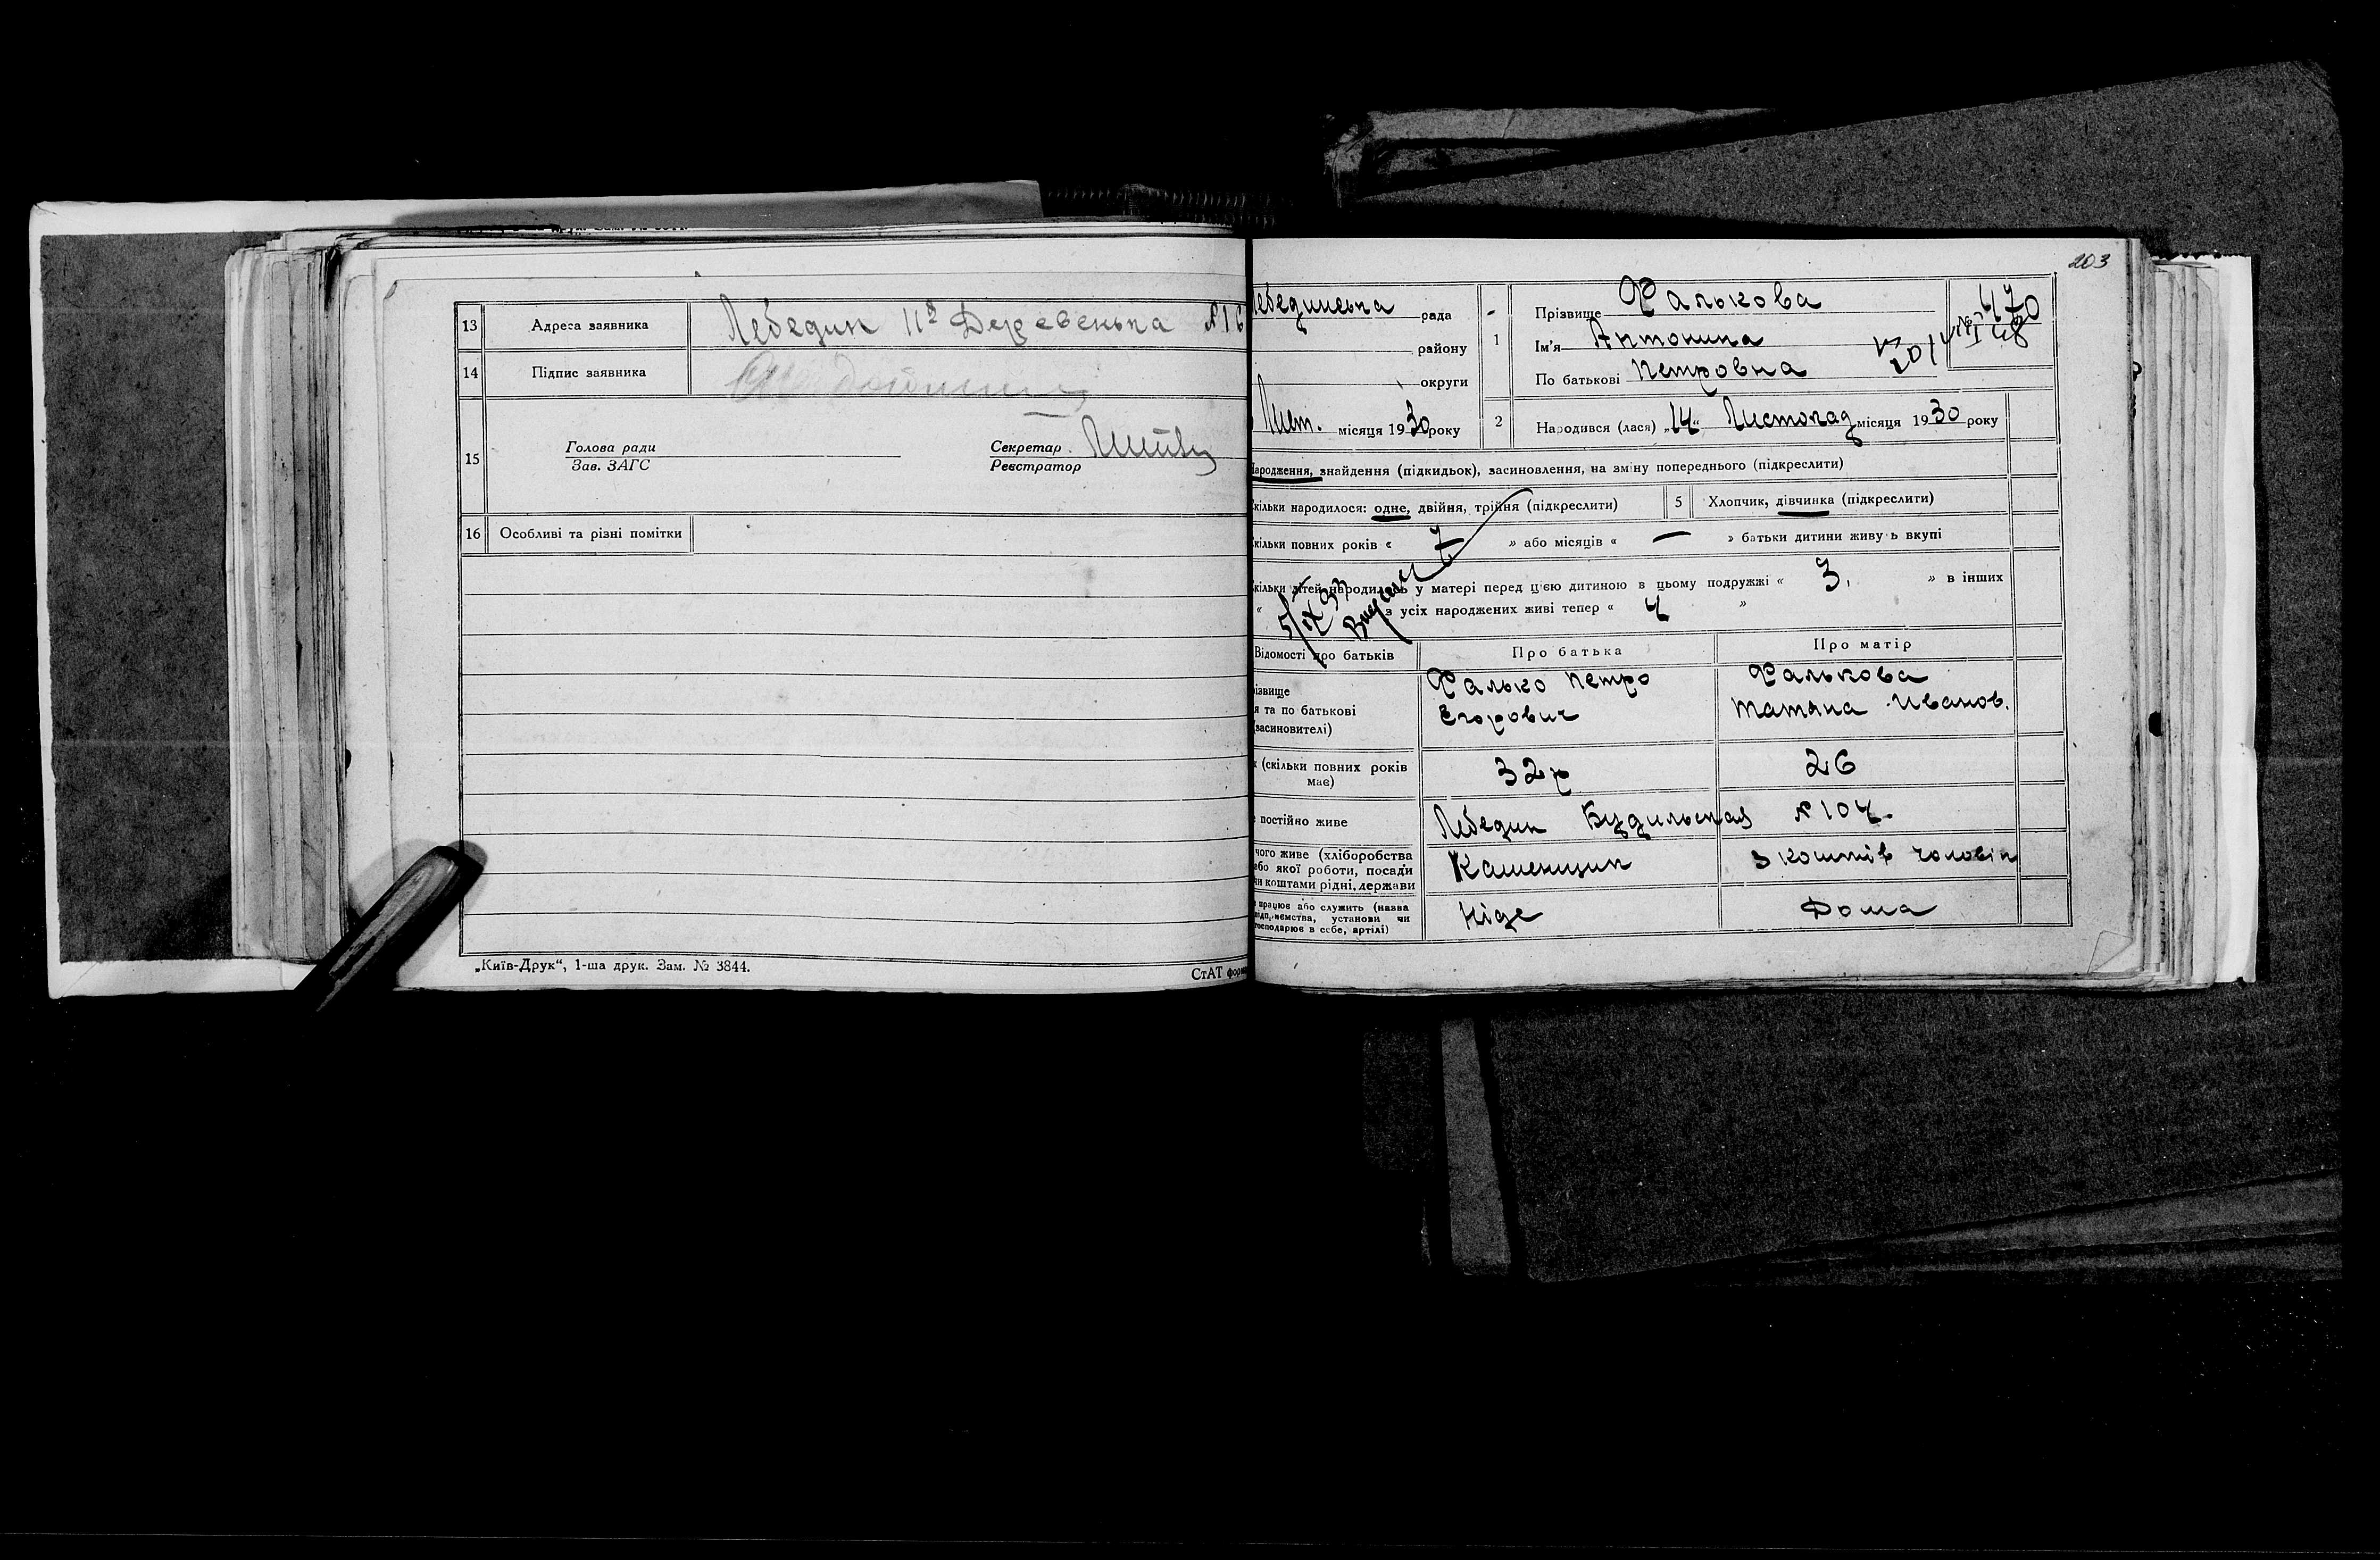 13 Адреса заявника Лебедин 11º Деревенька № 16
14 Підпис заявника
15 Голова ради Секретар
Зав. ЗАГС Реєстратор
16 Особливі та різні помітки
„Київ-Друк“, 1-ша друк. Зам. № 3844.
СтАТ форм
203
Лебединська рада
району
округи
Лист. місяця 1930 року
1 Прізвище Фалькова
Ім'я Антонина
По батькові Петровна
№ 470
2 Народився (лася) „14“ Листопад місяця 1930 року
народження, знайдення (підкидьок), засиновлення, на зміну попереднього (підкреслити)
кільки народилося: одне, двійня, трійня (підкреслити) 5 Хлопчик, дівчинка (підкреслити)
кільки повних років « 7 » або місяців « — » батьки дитини живуть вкупі
кільки дітей народилось у матері перед цією дитиною в цьому подружжі « 3, » в інших
« з усіх народжених живі тепер « 4 »
Відомості про батьків Про батька Про матір
різвище
я та по батькові
(засиновителі)
Фалько Петро
Егорович
Фалькова
Татяна Иванов.
к (скільки повних років
має)
32 р 26
е постійно живе Лебедин Будильская № 104.
чого живе (хліборобства
або якої роботи, посади
чи коштами рідні, держави
Каменщик З коштів чоловік
працює або служить (назва
підприємства, установи чи
господарює в себе, артілі)
Ніде Дома